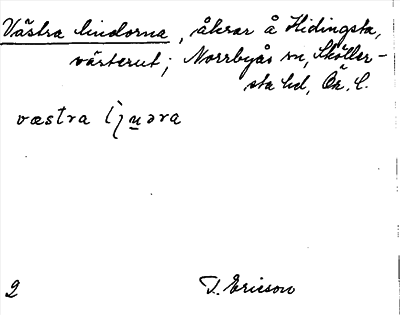 Västra lindorna, åkrar å Hidingsta,
västerut; Norrbyås sn, Sköller-
sta hd, Ör. L.
væstra
2 T. Ericson